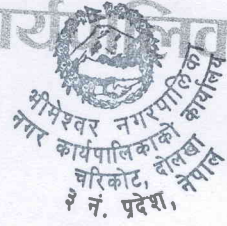 र्यपालिक
भीमेश्वर नगरपालिका
नगर कार्यपालिकाको कार्यालय
चरिकोट, दोलखा
३ नं. प्रदेश, नेपाल